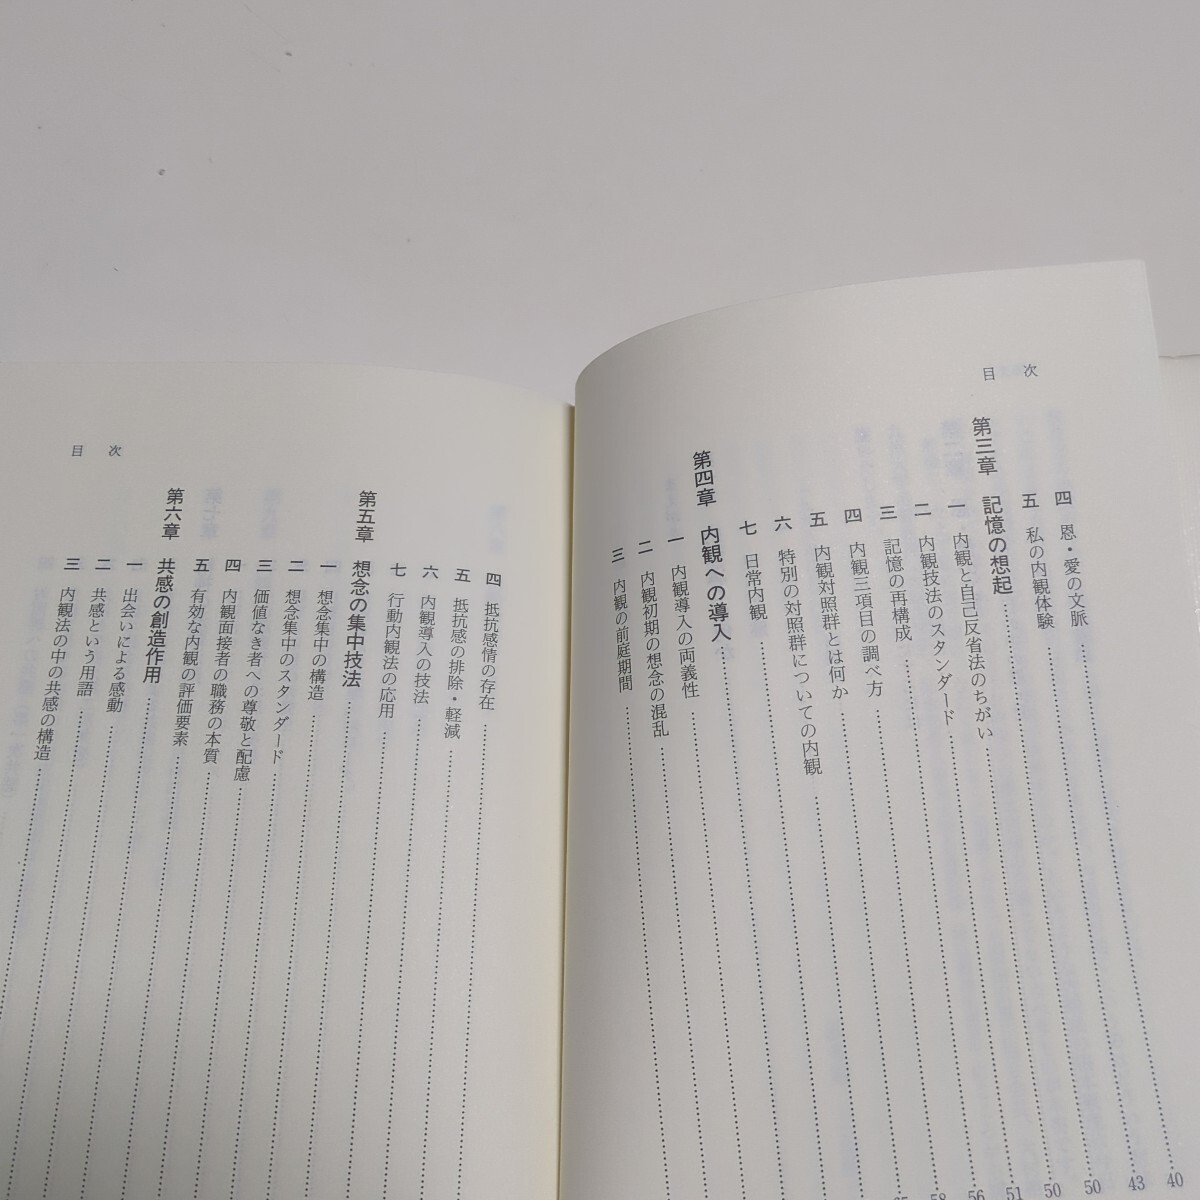 目次
四 恩・愛の文脈 40
五 私の内観体験 43
第三章 記憶の想起 50
一 内観と自己反省法のちがい 50
二 内観技法のスタンダード 51
三 記憶の再構成 56
四 内観三項目の調べ方 58
五 内観対照群とは何か
六 特別の対照群についての内観
七 日常内観
第四章 内観への導入
一 内観導入の両義性
二 内観初期の想念の混乱
三 内観の前庭期間
目次
四 抵抗感情の存在
五 抵抗感の排除・軽減
六 内観導入の技法
七 行動内観法の応用
第五章 想念の集中技法
一 想念集中の構造
二 想念集中のスタンダード
三 価値なき者への尊敬と配慮
四 内観面接者の職務の本質
五 有効な内観の評価要素
第六章 共感の創造作用
一 出会いによる感動
二 共感という用語
三 内観法の中の共感の構造